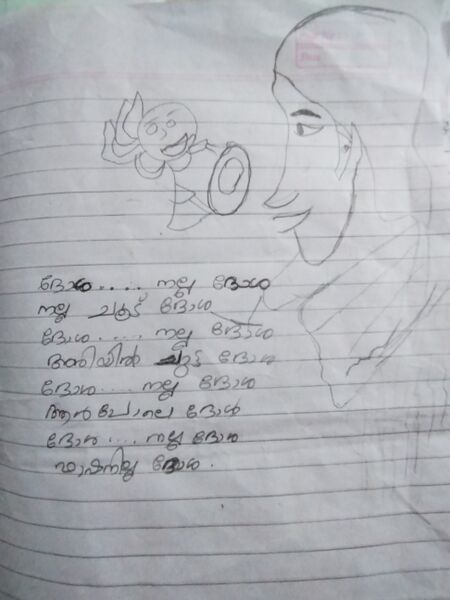 ദോശ.... നല്ല ദോശ
നല്ല ചൂട് ദോശ
ദോശ.... നല്ല ദോശ
ചുട്ട ദോശ
ദോശ.... നല്ല ദോശ
പോലെ ദോശ
ദോശ.... നല്ല ദോശ
ദോശ.